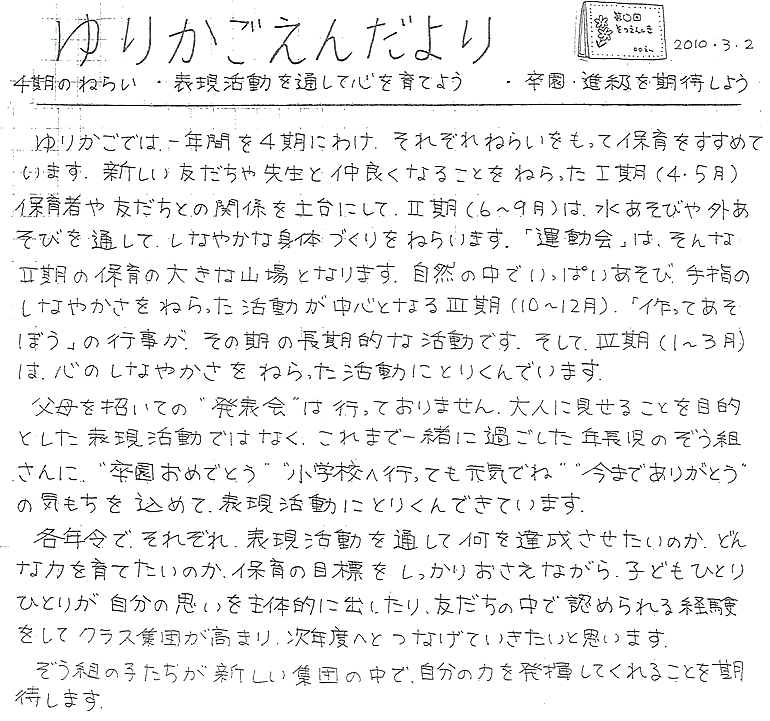 ゆりかごえんだより
2010・3・2
4期のねらい ・表現活動を通して心を育てよう ・卒園・進級を期待しよう
ゆりかごでは、一年間を4期にわけ、それぞれねらいをもって保育をすすめて
います。新しい友だちや先生と仲良くなることをねらったⅠ期(4・5月)
保育者や友だちとの関係を土台にして、Ⅱ期(6〜9月)は、水あそびや外あ
そびを通して、しなやかな身体づくりをねらいます。「運動会」は、そんな
Ⅱ期の保育の大きな山場となります。自然の中でいっぱいあそび、手指の
しなやかさをねらった活動が中心となるⅢ期(10〜12月)、「作ってあそ
ぼう」の行事が、その期の長期的な活動です。そして、Ⅳ期(1〜3月)
は、心のしなやかさをねらった活動にとりくんでいます。
父母を招いての"発表会"は行っておりません。大人に見せることを目的
とした表現活動ではなく、これまで一緒に過ごした年長児のぞう組
さんに、"卒園おめでとう" "小学校へ行っても元気でね" "今までありがとう"
の気もちを込めて、表現活動にとりくんできています。
各年令で、それぞれ、表現活動を通して何を達成させたいのか、どん
な力を育てたいのか、保育の目標をしっかりおさえながら、子どもひとり
ひとりが自分の思いを主体的に出したり、友だちの中で認められる経験
をしてクラス集団が高まり、次年度へとつなげていきたいと思います。
ぞう組の子たちが新しい集団の中で、自分の力を発揮してくれることを期
待します。